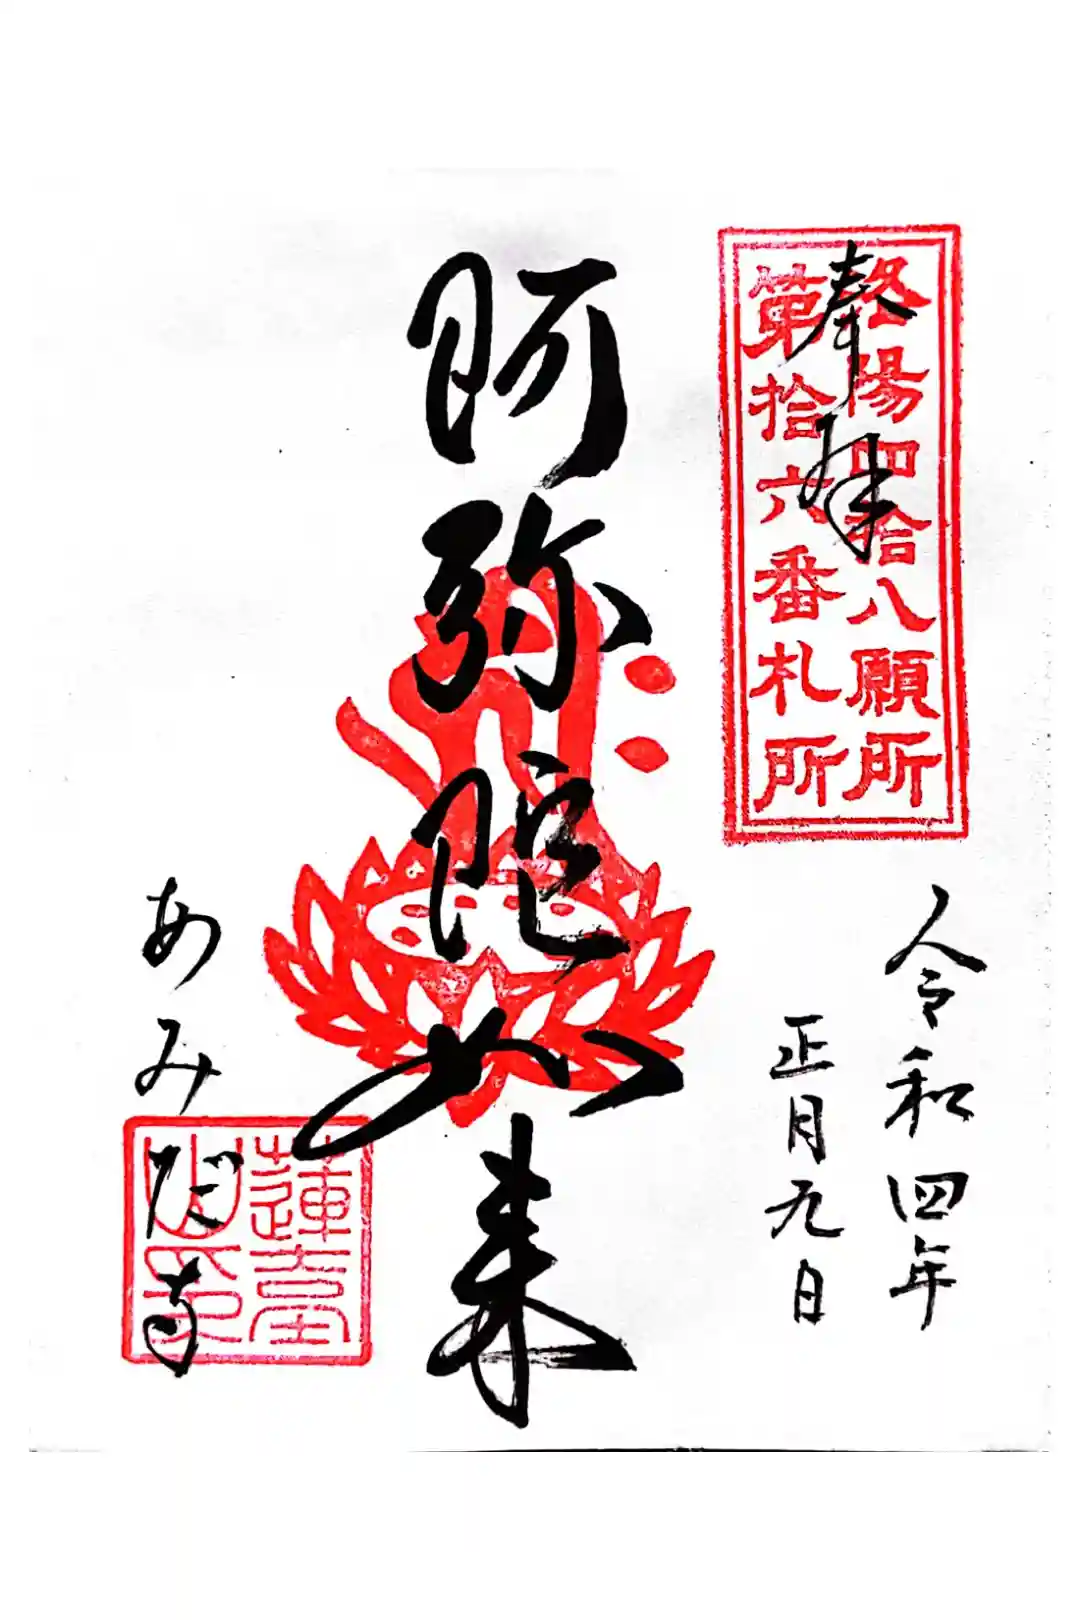 奉拝
洛陽四拾八願所
第拾六番札所
令和四年
正月九日
阿弥陀如来
あみだ寺
蓮臺
山印